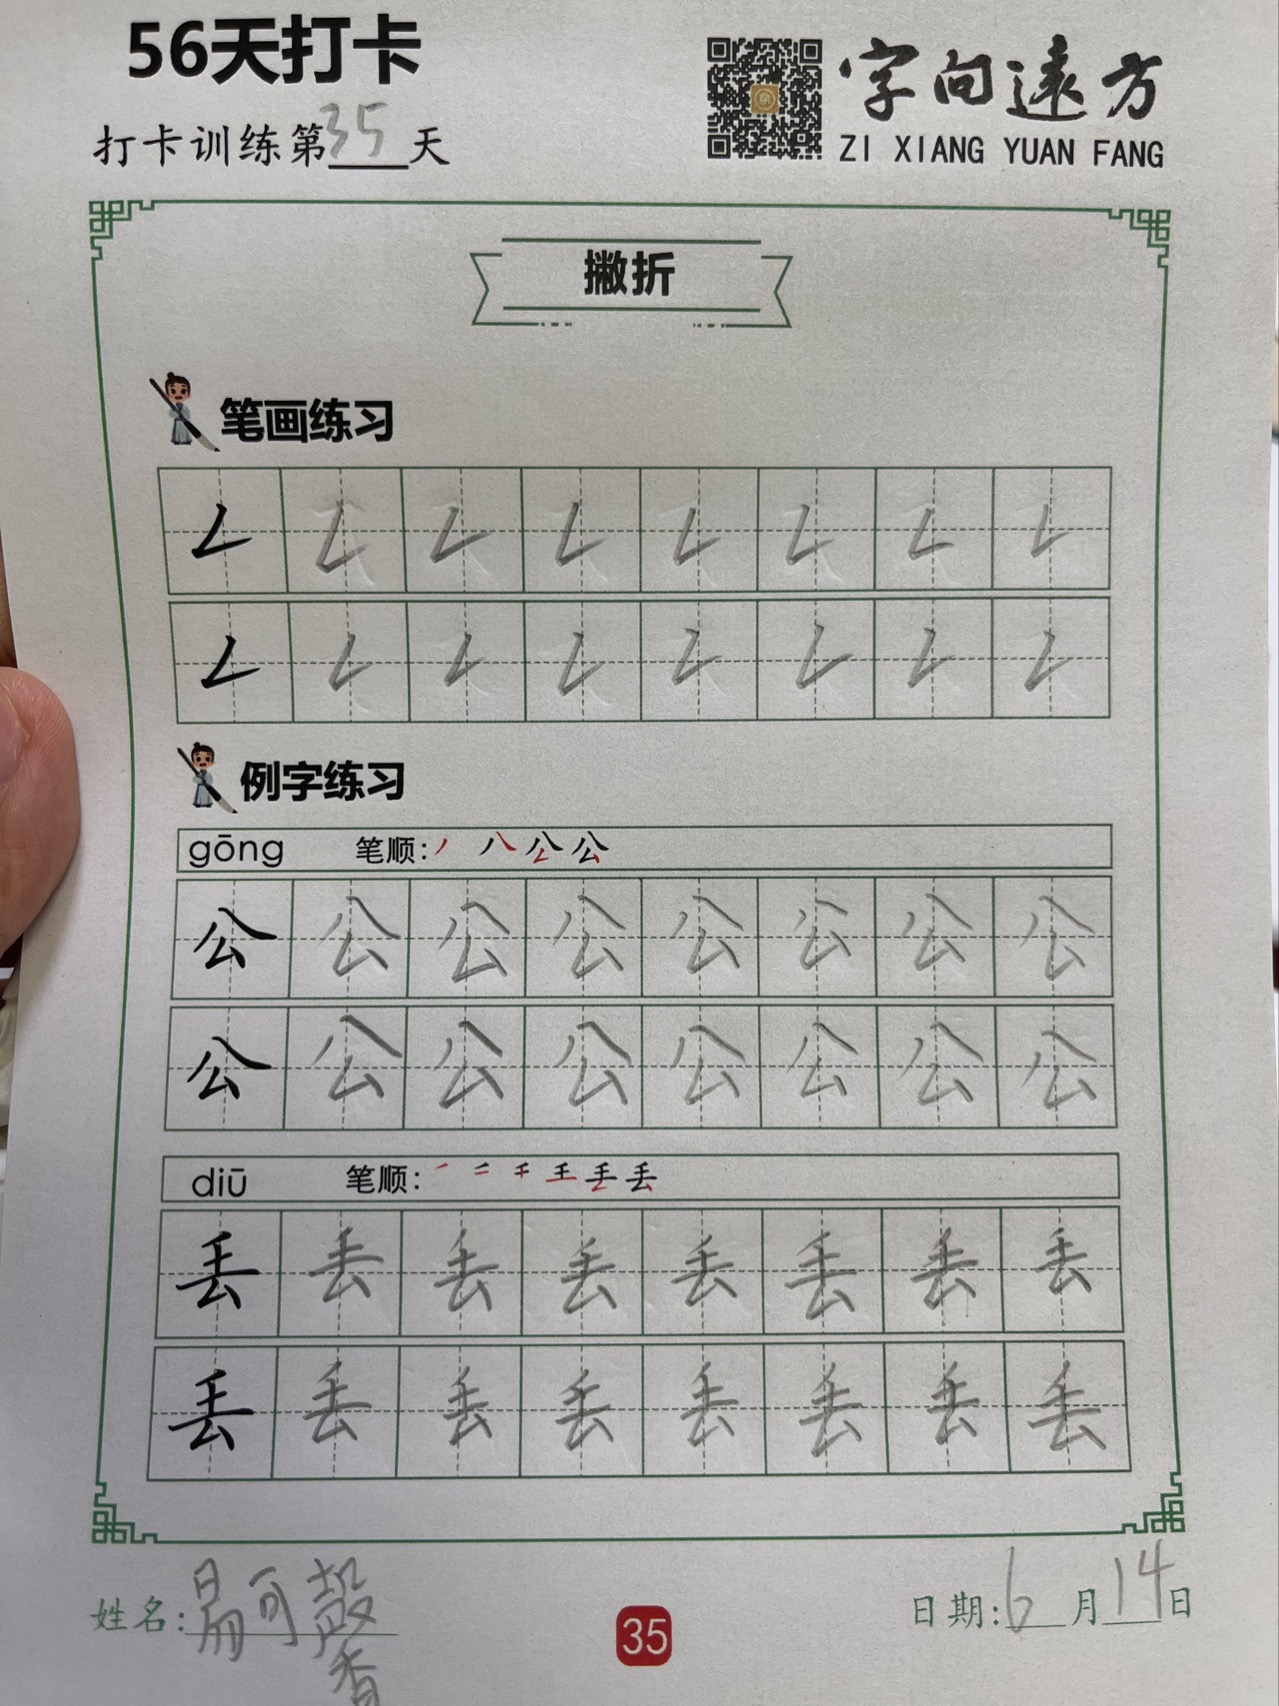 56天打卡
字向遠方
打卡训练第35天
ZI XIANG YUAN FANG
撇折
笔画练习
𠃋 𠃋 𠃋 𠃋 𠃋 𠃋 𠃋 𠃋
𠃋 𠃋 𠃋 𠃋 𠃋 𠃋 𠃋 𠃋
例字练习
gōng 笔顺:
公 公 公 公 公 公 公 公
公 公 公 公 公 公 公 公
diū 笔顺:
丢 丢 丢 丢 丢 丢 丢 丢
丢 丢 丢 丢 丢 丢 丢 丢
姓名:易可馨
35
日期:6月14日